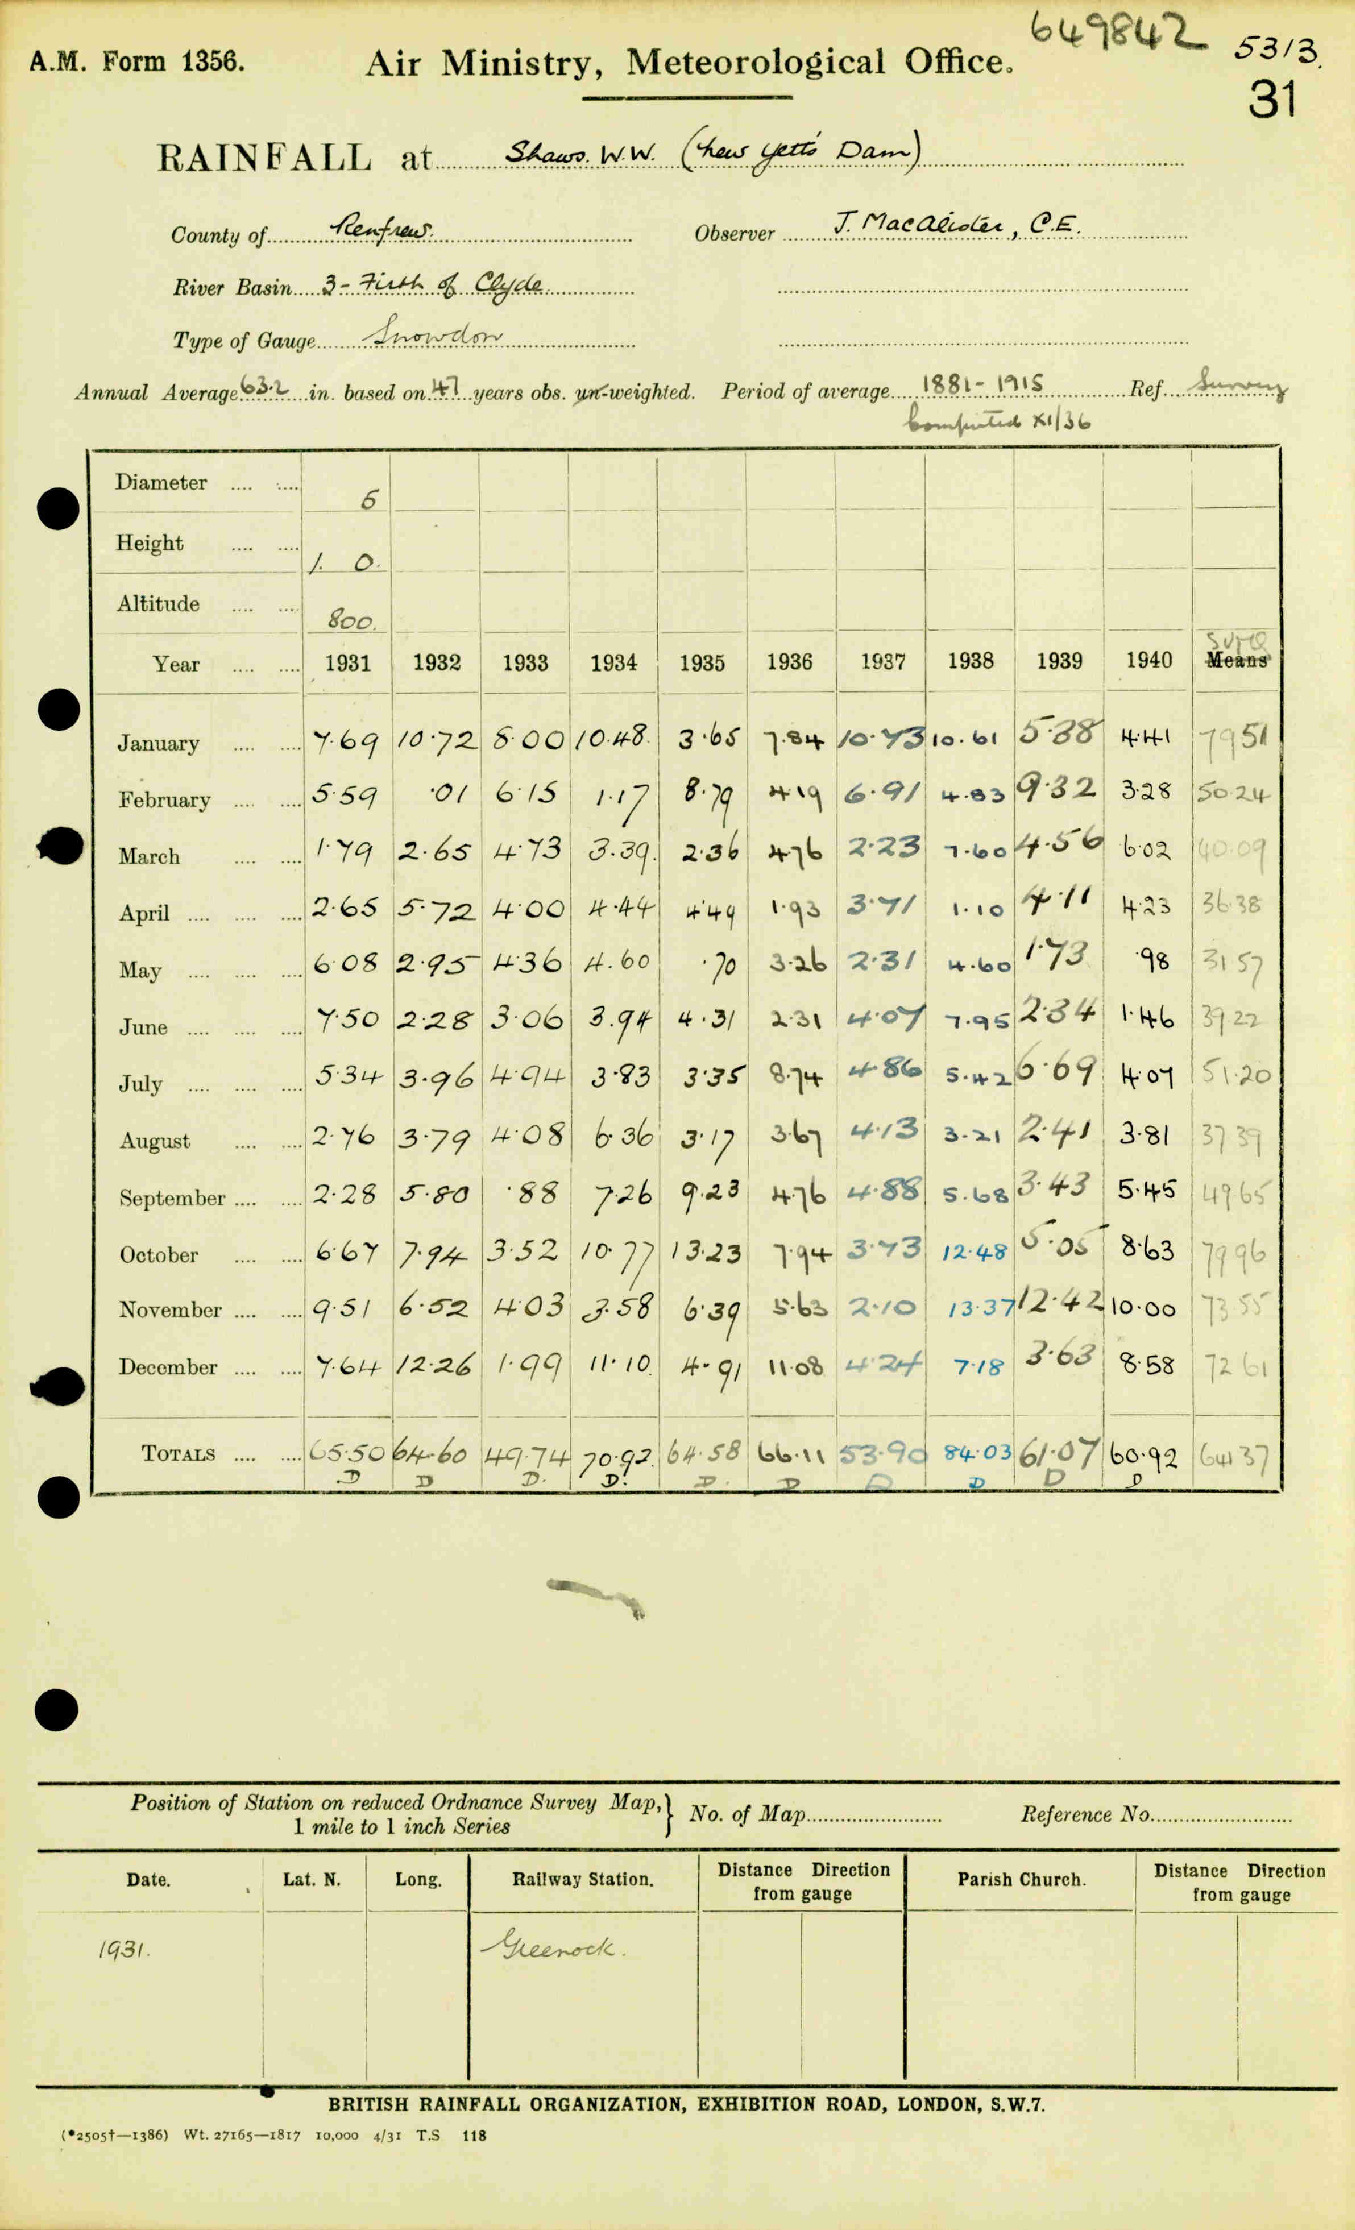 649842
5313.
A.M. Form 1356. Air Ministry, Meteorological Office.
31
RAINFALL at Shaws. W.W. (New Yetts Dam)
County of Renfrew. Observer J. MacAlister, C.E.
River Basin 3 - Firth of Clyde
Type of Gauge Snowdon
Annual Average 63.2 in. based on 47 years obs. un-weighted. Period of average 1881-1915 Ref. Survey
Computed XI/36
Diameter 5
Height 1. 0.
Altitude 800.
Sums
Year 1931 1932 1933 1934 1935 1936 1937 1938 1939 1940 Means
January 7.69 10.72 8.00 10.48 3.65 7.84 10.73 10.61 5.38 4.41 79 51
February 5.59 .01 6.15 1.17 8.79 4.19 6.91 4.83 9.32 3.28 50.24
March 1.79 2.65 4.73 3.39 2.36 4.76 2.23 7.60 4.56 6.02 40.09
April 2.65 5.72 4.00 4.44 4.49 1.93 3.71 1.10 4.11 4.23 36.38
May 6.08 2.95 4.36 4.60 .70 3.26 2.31 4.60 1.73 .98 31 57
June 7.50 2.28 3.06 3.94 4.31 2.31 4.07 7.95 2.34 1.46 39 22
July 5.34 3.96 4.94 3.83 3.35 8.74 4.86 5.42 6.69 4.07 51.20
August 2.76 3.79 4.08 6.36 3.17 3.67 4.13 3.21 2.41 3.81 37 39
September 2.28 5.80 .88 7.26 9.23 4.76 4.88 5.68 3.43 5.45 49 65
October 6.67 7.94 3.52 10.77 13.23 7.94 3.73 12.48 5.05 8.63 79 96
November 9.51 6.52 4.03 3.58 6.39 5.63 2.10 13.37 12.42 10.00 73 55
December 7.64 12.26 1.99 11.10 4.91 11.08 4.24 7.18 3.63 8.58 72 61
TOTALS 65.50 64.60 49.74 70.92 64.58 66.11 53.90 84.03 61.07 60.92 641 37
D D D. D. D. D D D D D
Position of Station on reduced Ordnance Survey Map, } No. of Map Reference No.
1 mile to 1 inch Series
Date. Lat. N. Long. Railway Station. Distance Direction from gauge Parish Church. Distance Direction from gauge
1931. Greenock.
BRITISH RAINFALL ORGANIZATION, EXHIBITION ROAD, LONDON, S.W.7.
(*2505†—1386) Wt. 27165—1817 10,000 4/31 T.S 118